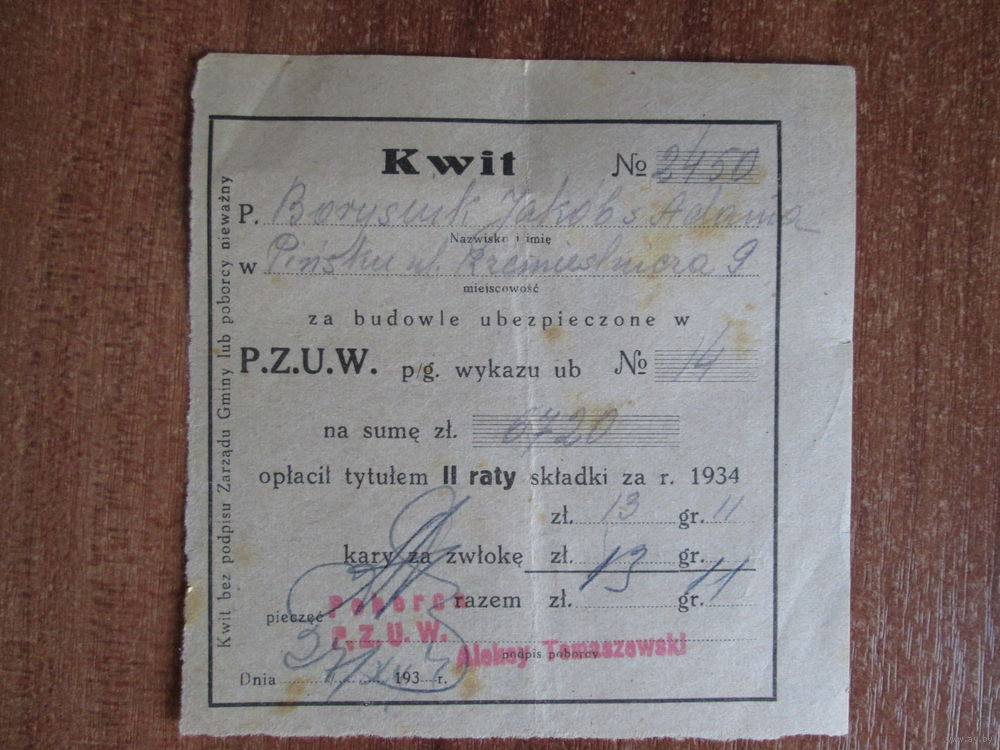 Kwit № 2450
P. Borysiuk Jakób s Adama
Nazwisko i imię
w Pińsku ul. Rzemieślnicza 9
miejscowość
za budowle ubezpieczone w
P.Z.U.W. p/g. wykazu ub № 14
na sumę zł. 6720
opłacił tytułem II raty składki za r. 1934
zł. 13 gr. 11
kary za zwłokę zł. gr.
razem zł. 13 gr. 11
pieczęć
Poborca
P.Z.U.W.
Aleksy Tomaszewski
podpis poborcy
Dnia 193 r.
Kwit bez podpisu Zarządu Gminy lub poborcy nieważny